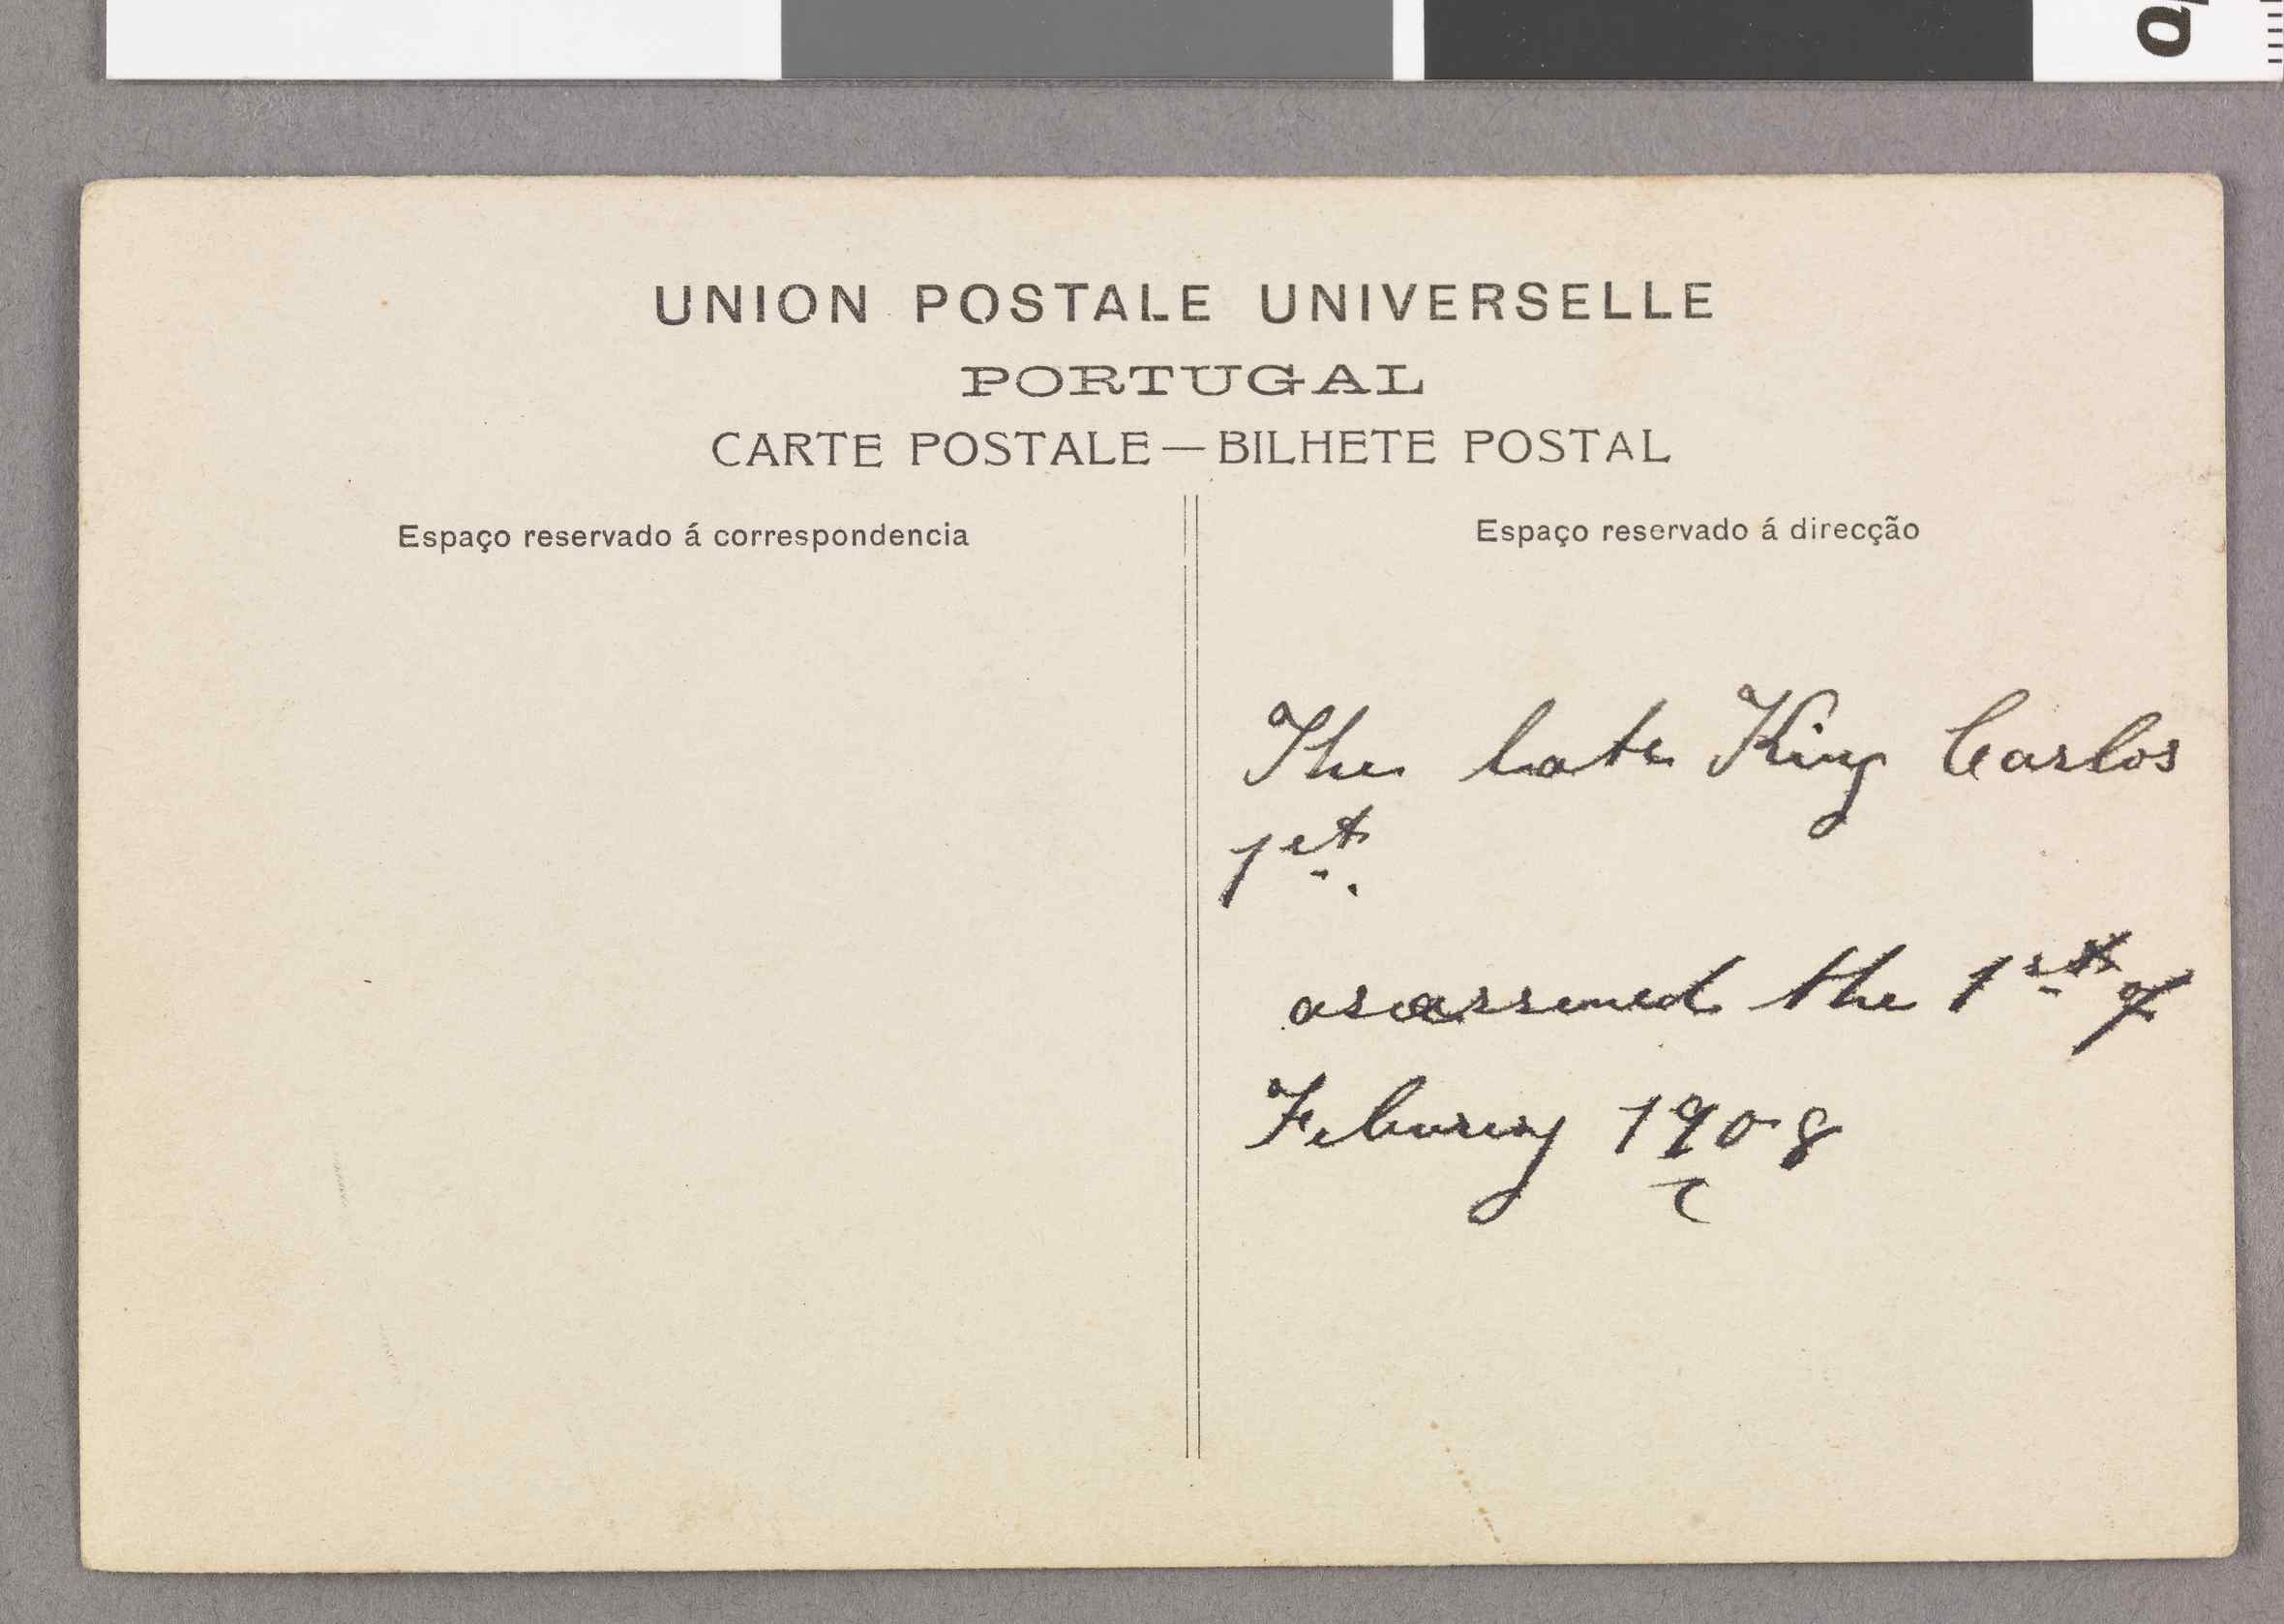 UNION POSTALE UNIVERSELLE
PORTUGAL
CARTE POSTALE — BILHETE POSTAL
Espaço reservado á correspondencia
Espaço reservado á direcção
The late King Carlos
1st.
the 1st of
Februrey 1908